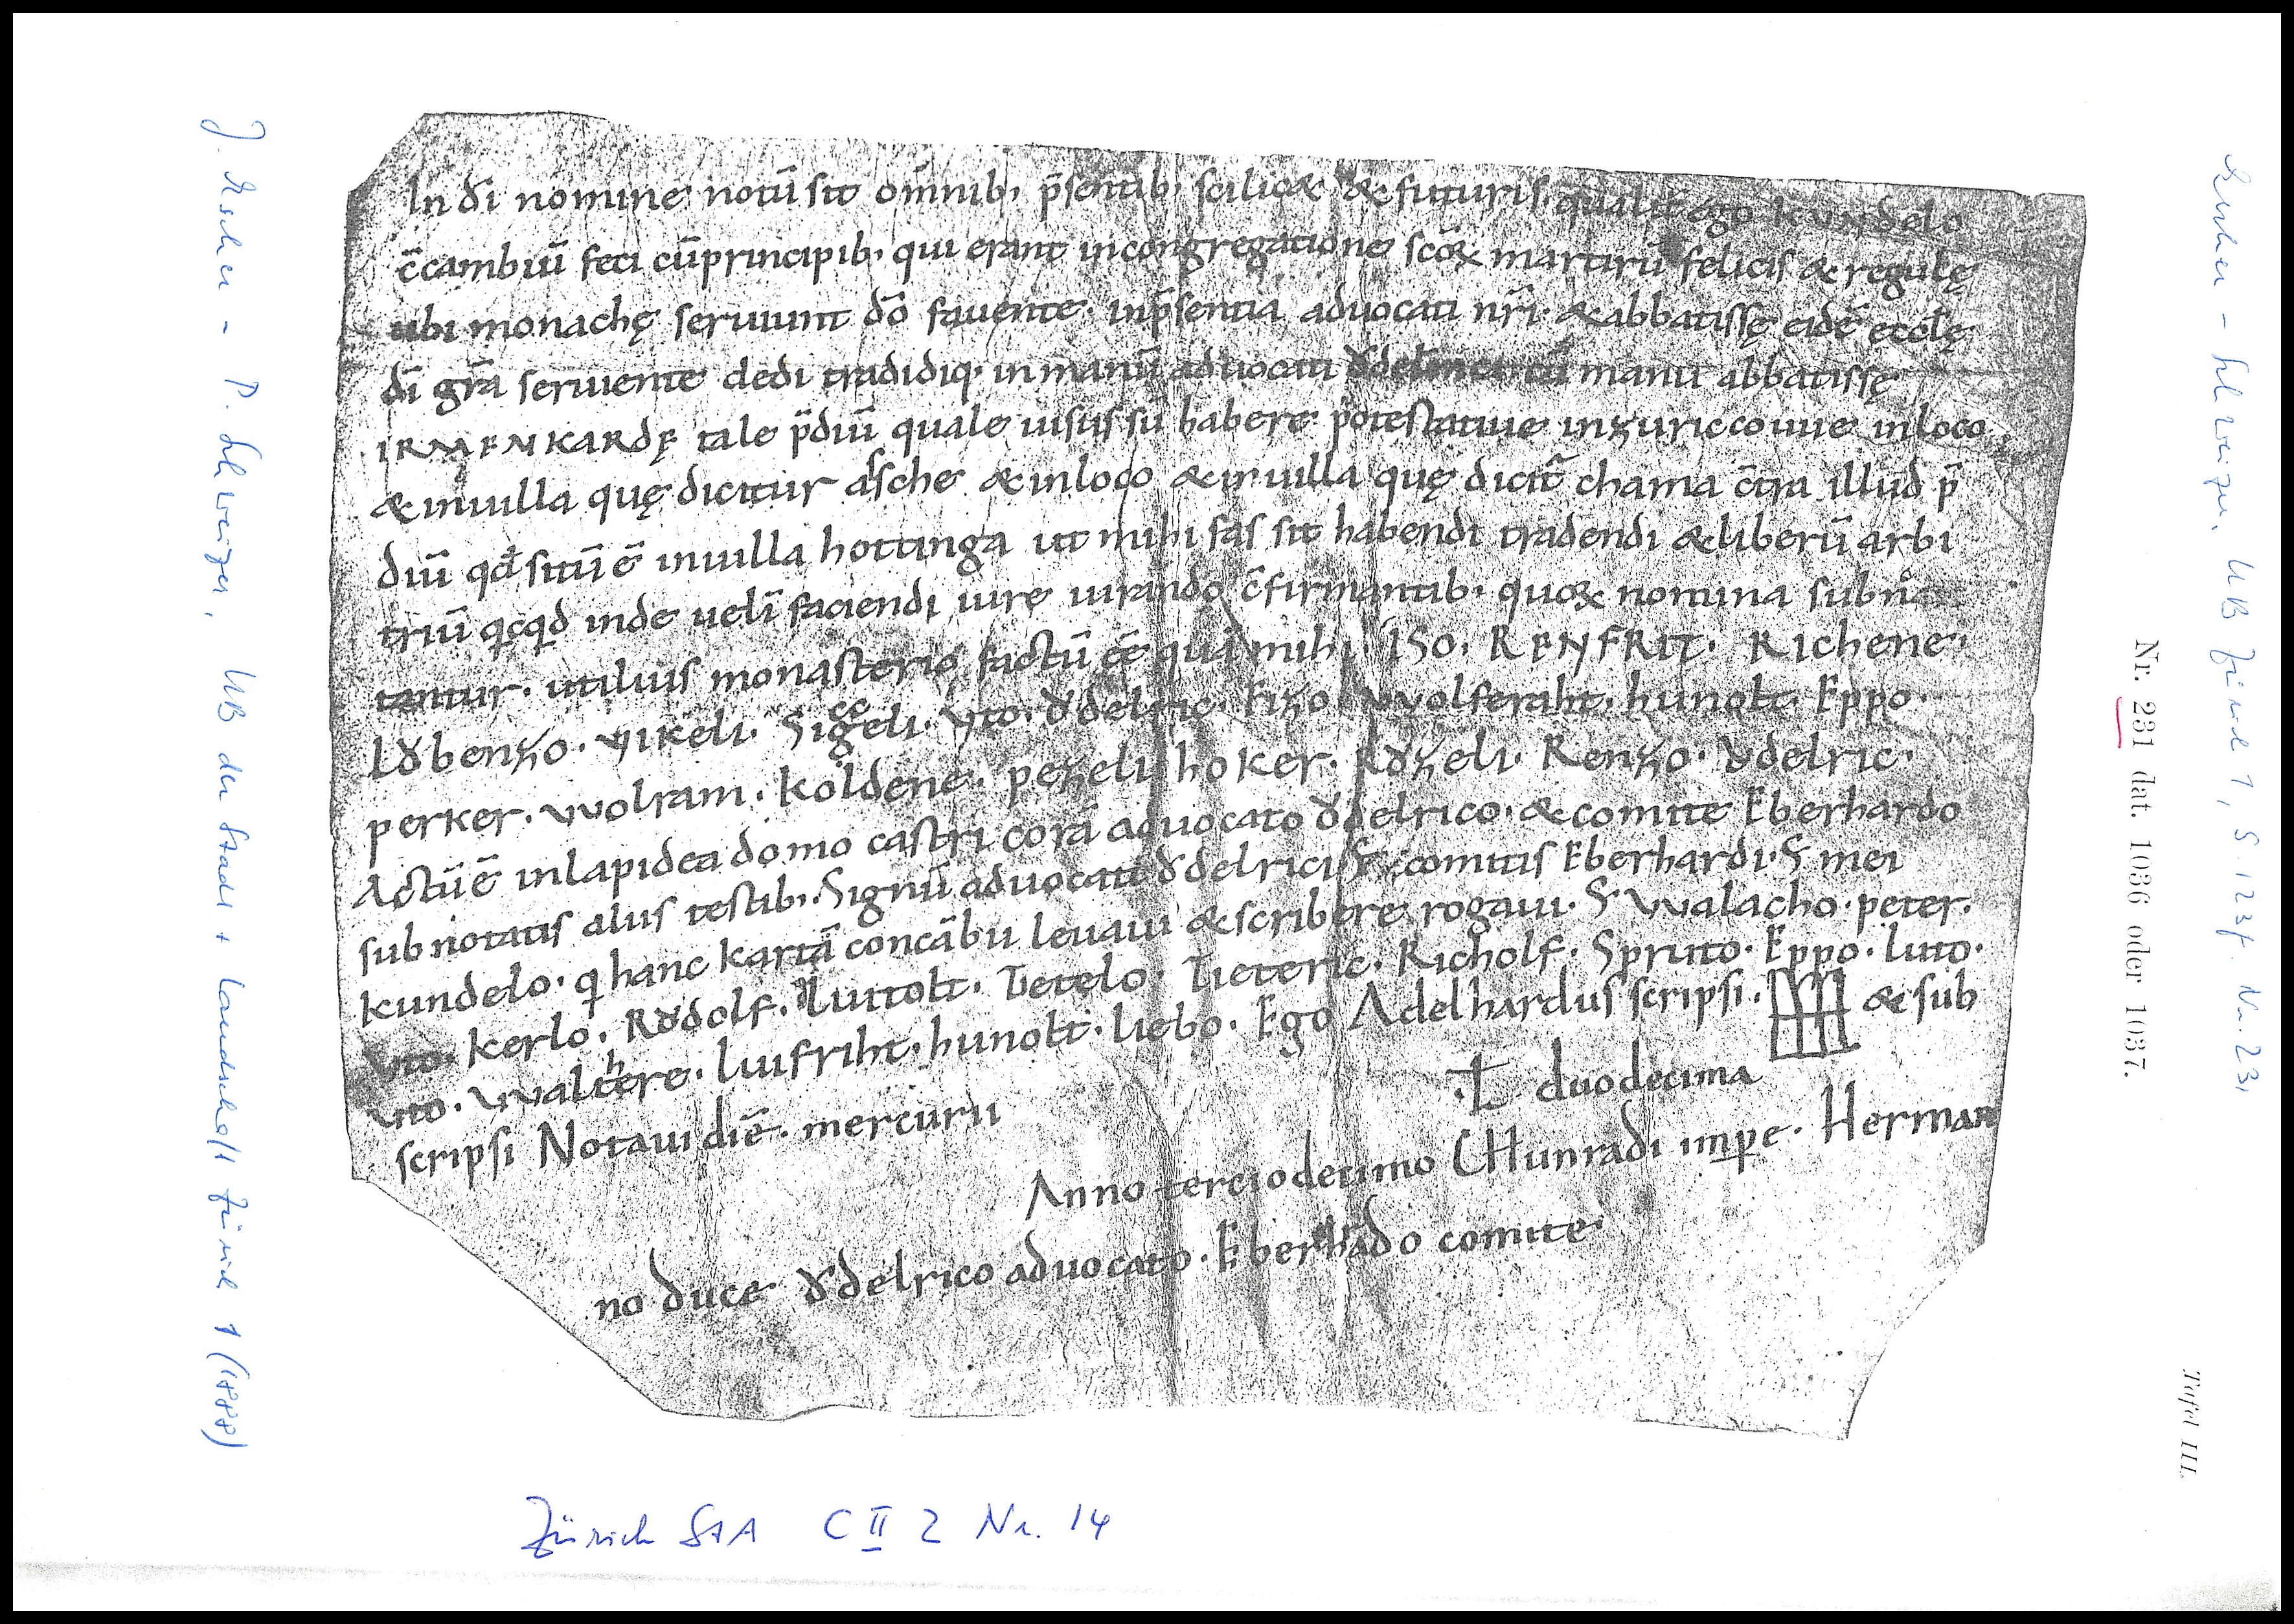 In dī nomine notū sit om̄nib; p̄sentib; scilic& & futuris. qualit̄ ego kundelo
c̄cambiū feci cū principib; qui erant in congregatione sc̄oꝝ martirū felicis & regulę
ubi monachę seruiunt dō fauente. in p̄sentia aduocati nr̄i. & abbatissę eidē eccl̄ę
dī gr̄a seruiente dedi tradidiq; in manū aduocati manu abbatissę
IRMENKARDĘ tale p̄diū quale uisus sū habere potestatiue in zuriccouue in loco
& in uilla quę dicitur asche & in loco & in uilla quę dicit̄ chama c̄tra illud p̄
diū qđ sitū ē in uilla hottinga ut mihi fas sit habendi tradendi & liberū arbi
triū qcqd inde uelī faciendi iure iurando c̄firmantib; quoꝝ nomina subno
tantur. utiluis monasterio factū eē quā mihi. ISO. RENFRIT. Richene.
Lꝸbenzo. Vikeli. Siggeli. Vto. ꝸdelric. Eizo. VVolferaht. hunolt. Eppo.
perker. VVolram. Koldene. pezeli. hoker. Rꝸzeli. Renzo. ꝸdelric.
Actū ē in lapidea domo castri corā aduocato ꝸdelrico. & comite Eberhardo
sub notatis aliis testib;. Signū aduocati ꝸdelrici. S comitis Eberhardi. S mei
kundelo. q hanc kartā concābii leuaui & scribere rogaui. S VValacho. peter.
Vto. Kerlo. Rꝸdolf. Liutolt. Tietelo. Tieteric. Richolf. Spruto. Eppo. luto.
Vto. VValthere. Liufriht. hunolt. liebo. Ego Adelhardus scripsi. & sub
scripsi Notaui diē. mercurii
Ł duodecima
Anno terciodecimo CHunradi impe. Herman
no duce ꝸdelrico aduocato. Eberhado comite
J. Escher - P. Schweizer, UB der Stadt + Landschaft Zürich 1 (1888)
Escher - Schweizer, UB Zürich 1, S. 123f. Nr. 231
Nr. 231 dat. 1036 oder 1037.
Tafel III.
Zürich StA C II 2 Nr. 14